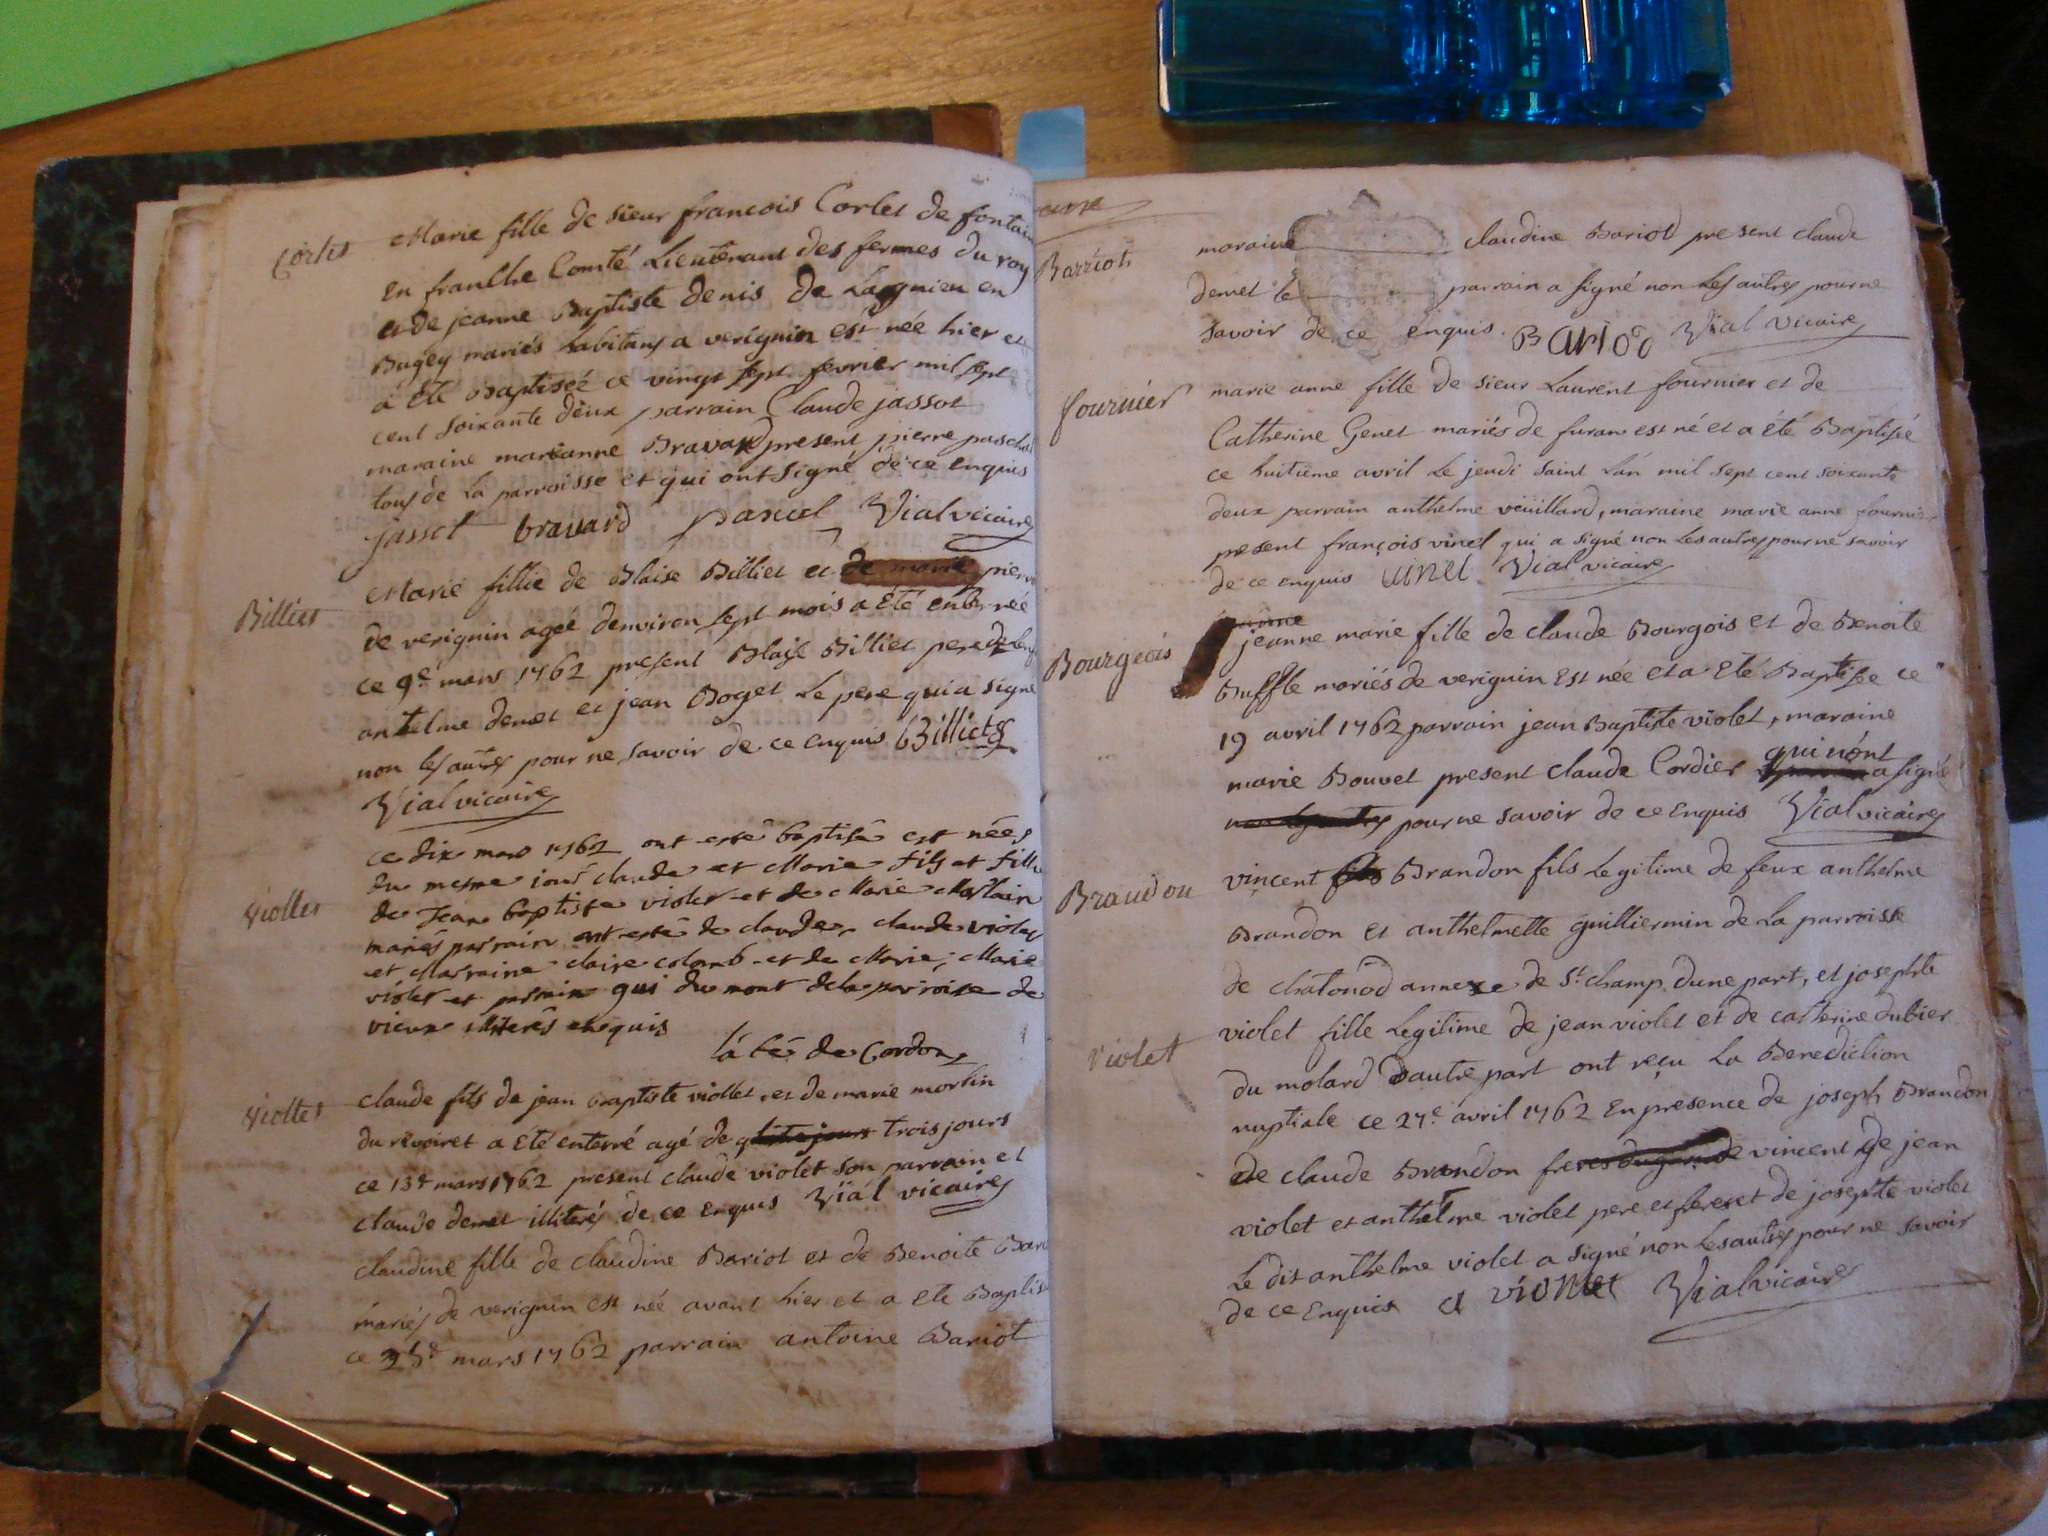 Cortes
Marie fille de sieur francois Cortes de fontain
en franche Comté Lieutenant des fermes du roy
et de jeanne Baptiste denis de Lagnieu en
Bugey mariés habitans a verignin est née hier et
a été Baptiseé ce vingt sept fevrier mil sept
cent soixante deux parrain Claude jassot
maraine marianne Bravard present pierre
tous de la parroisse et qui ont signé de ce enquis
jassot bravard pascal Vial vicaire
Billiet
Marie fillie de Blaise Billiet et de marie pierr
de verignin ageé denviron sept mois a été enterreé
ce 9e mars 1762 present Blaise Billiet pere de
antelme demet et jean Boget Le pere qui a signé
non les autres pour ne savoir de ce enquis Billiet
Vial vicaire
Viollet
ce dix mars 1762 ont esté baptisé est nées
du mesme iour claude et Marie fils et fille
de Jean baptiste violet et de Marie
mariés parrain ont esté de claude, claude violet
et Marraine claire colomb et de Marie, Marie
violet et parrain qui du mont de la parroise de
vieux illiterés enquis
l'abé de Cordon
Viollet
claude fils de jean Baptiste viollet, et de marie morlin
du revoiret a été enterré agé de trois jours
ce 13e mars 1762 present claude violet son parrain et
claude demet illiterés de ce enquis Vial vicaire
claudine fille de claudine Bariot et de Benoite Bari
mariés de verignin est née avant hier et a ete Baptis
ce 25e mars 1762 parrain antoine Bariot
Barriot
maraine claudine Bariot present claude
demet le parrain a signé non Les autres pour ne
savoir de ce enquis. Bariod Vial vicaire
fournier
marie anne fille de sieur Laurent fournier et de
Catherine Genet mariés de furan est né et a été Baptisé
ce huitieme avril Le jeudi saint Lán mil sept cent soixante
deux parrain anthelme veüillard, maraine marie anne fournier
present françois vinet qui a signé non Les autres pour ne savoir
de ce enquis vinet Vial vicaire
Bourgeois
jeanne
jeanne marie fille de claude Bourgois et de Benoite
Buffle mariés de verignin est née et a été Baptisée ce
19 avril 1762 parrain jean Baptiste violet, maraine
marie Bouvet present claude Cordier qui n'ont signé
non les autres pour ne savoir de ce enquis Vial vicaire
Brandon
vincent fils Brandon fils Legitime de feux anthelme
Brandon et anthelmette guilliermin de La parroisse
de chatonod annexe de St champ dune part, et josephte
Violet
violet fille Legitime de jean violet et de catherine dubier
du molard d'autre part ont reçu La Benediction
nuptiale ce 27e avril 1762 En presence de joseph Brandon
de claude Brandon freres vincent de jean
violet et anthelme violet pere et frere de josephte violet
Le dit anthelme violet a signé non Les autres pour ne savoir
de ce Enquis a viollet Vial vicaire